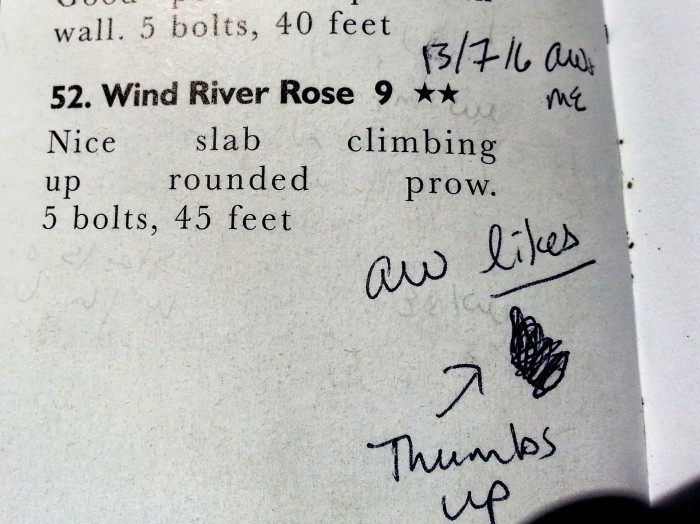 wall. 5 bolts, 40 feet
13/7/16 aw+
me
52. Wind River Rose 9 ★★
Nice slab climbing
up rounded prow.
5 bolts, 45 feet
aw likes
Thumbs
up